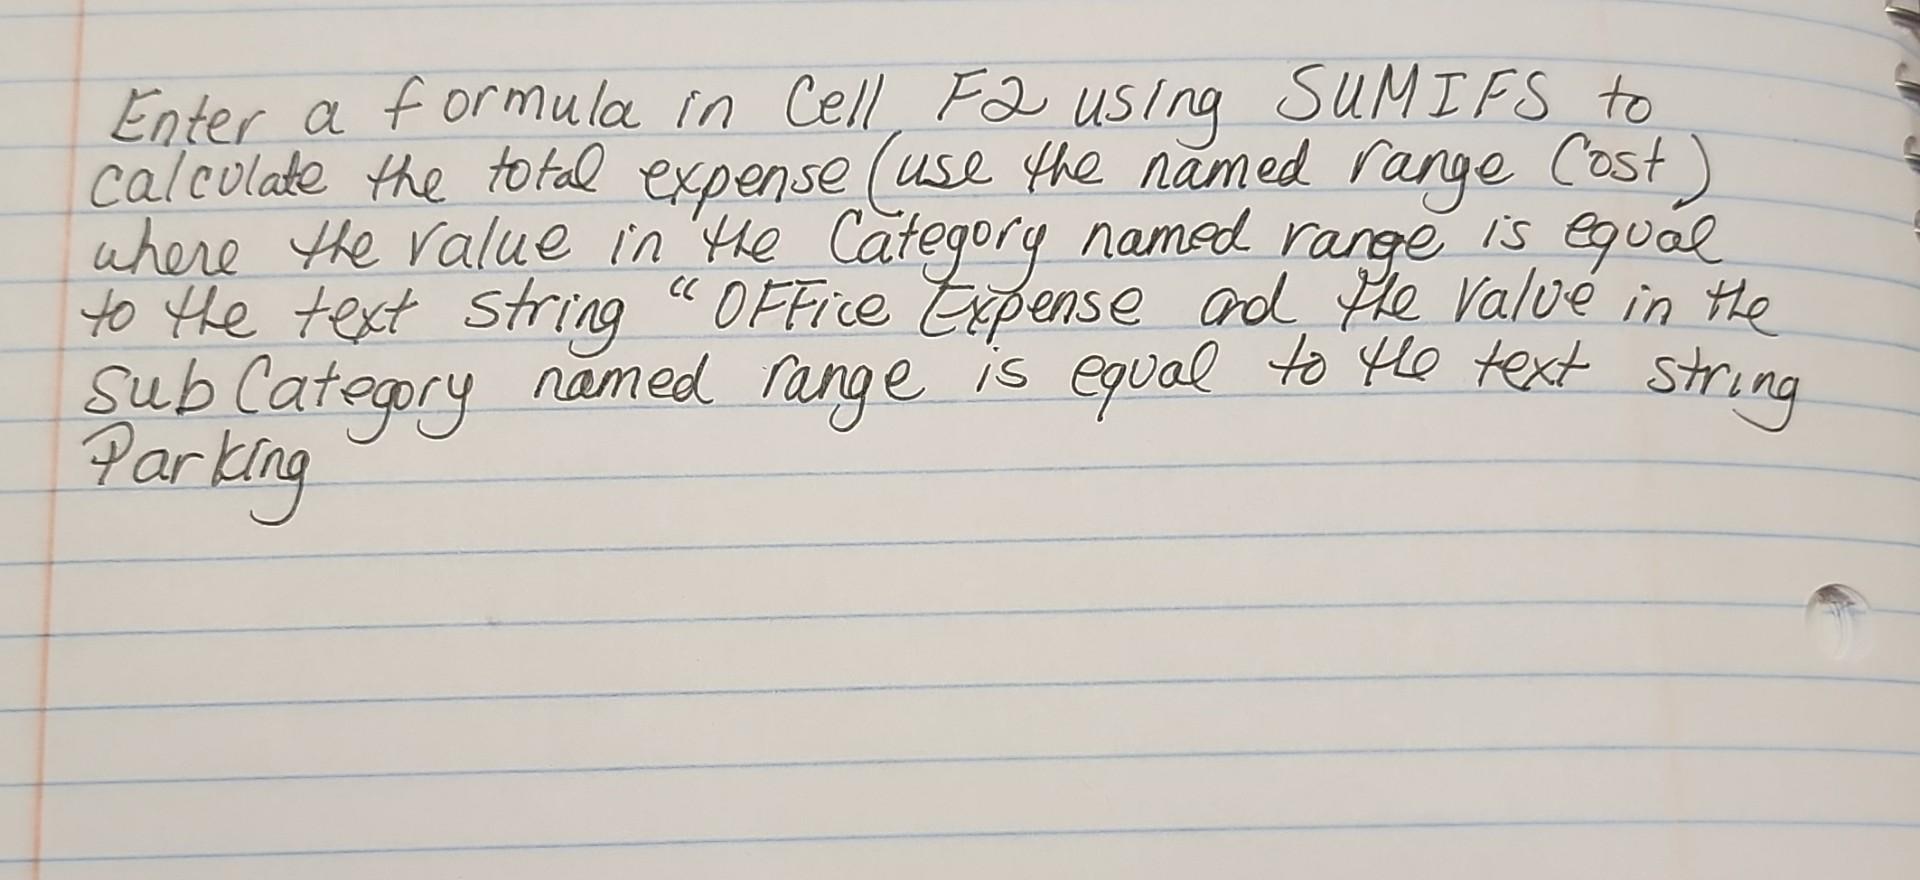 Enter a formula in Cell F2 using SUMIFS to
calculate the total expense (use the named range Cost)
where the value in the Category named range is equal
to the text string “Office Expense and the value in the
SubCategory named range is equal to the text string
Parking